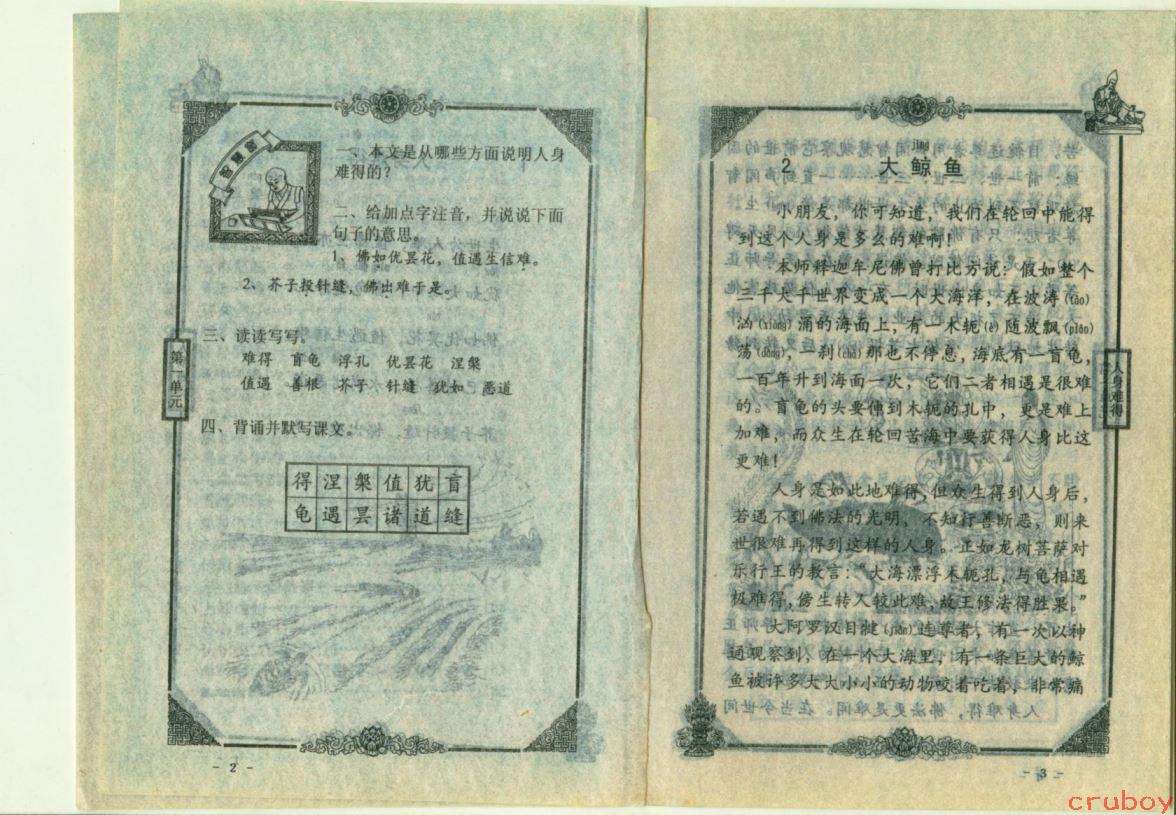 智慧窗
一、本文是从哪些方面说明人身
难得的？
二、给加点字注音，并说说下面
句子的意思。
1、佛如优昙花，值遇生信难。
2、芥子投针缝，佛出难于是。
三、读读写写。
难得 盲龟 浮孔 优昙花 涅槃
值遇 善根 芥子 针缝 犹如 恶道
四、背诵并默写课文。
得涅槃值犹盲
龟遇昙诸道缝
第一单元
- 2 -
jīng
2 大鲸鱼
小朋友，你可知道，我们在轮回中能得
到这个人身是多么的难啊！
本师释迦牟尼佛曾打比方说：假如整个
三千大千世界变成一个大海洋，在波涛(tāo)
汹(xiōng)涌的海面上，有一木轭(è)随波飘(piāo)
荡(dàng)，一刹(chà)那也不停息，海底有一盲龟，
一百年升到海面一次，它们二者相遇是很难
的。盲龟的头要伸到木轭的孔中，更是难上
加难，而众生在轮回苦海中要获得人身比这
更难！
人身是如此地难得，但众生得到人身后，
若遇不到佛法的光明，不知行善断恶，则来
世很难再得到这样的人身。正如龙树菩萨对
乐行王的教言：“大海漂浮木轭孔，与龟相遇
极难得，傍生转人较此难，故王修法得胜果。”
大阿罗汉目犍(jiān)连尊者，有一次以神
通观察到，在一个大海里，有一条巨大的鲸
鱼被许多大大小小的动物咬着吃着，非常痛
人身难得
- 3 -
cruboy